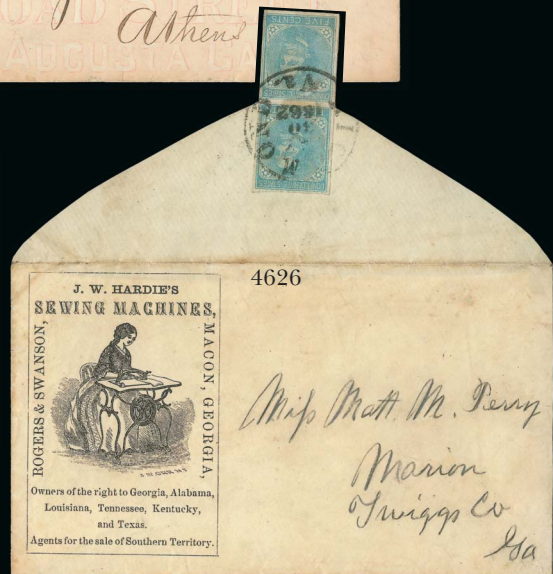 ROAD STREET
Athens
AUGUSTA GA
FIVE CENTS
Va
1862
10
4626
J. W. HARDIE'S
SEWING MACHINES,
ROGERS & SWANSON,
MACON, GEORGIA,
Owners of the right to Georgia, Alabama,
Louisiana, Tennessee, Kentucky,
and Texas.
Agents for the sale of Southern Territory.
Miſs Matt. M. Perry
Marion
Twiggs Co
Ga